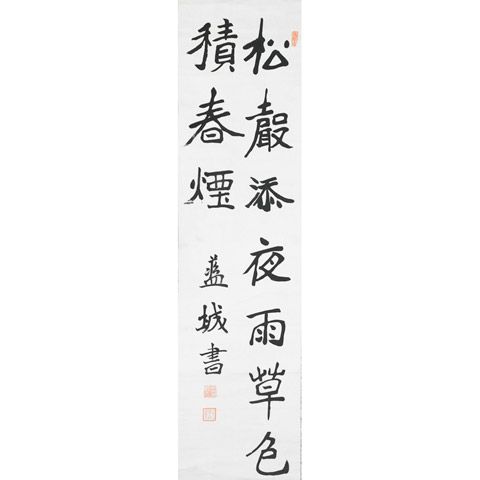 松聲添夜雨草色
積春煙
藍城書